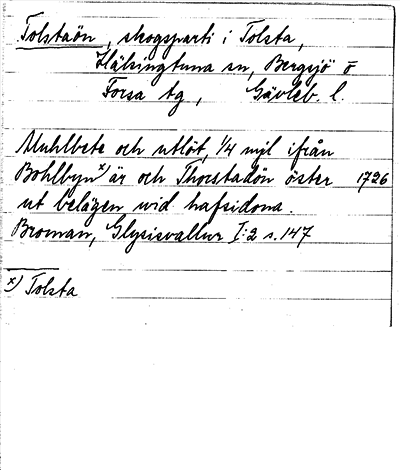 Tolstaön, skogsparti i Tolsta,
Hälsingtuna sn, Bergsjö o
Forsa tg, Gävleb. l.
Muhlbete och utlöt, 1/4 mjl ifrån
Bohlbyn x) är och Thorstadön öster 1726
ut belägen wid hafsidona.
Broman, Glysisvallur I:2 s. 147
x) Tolsta